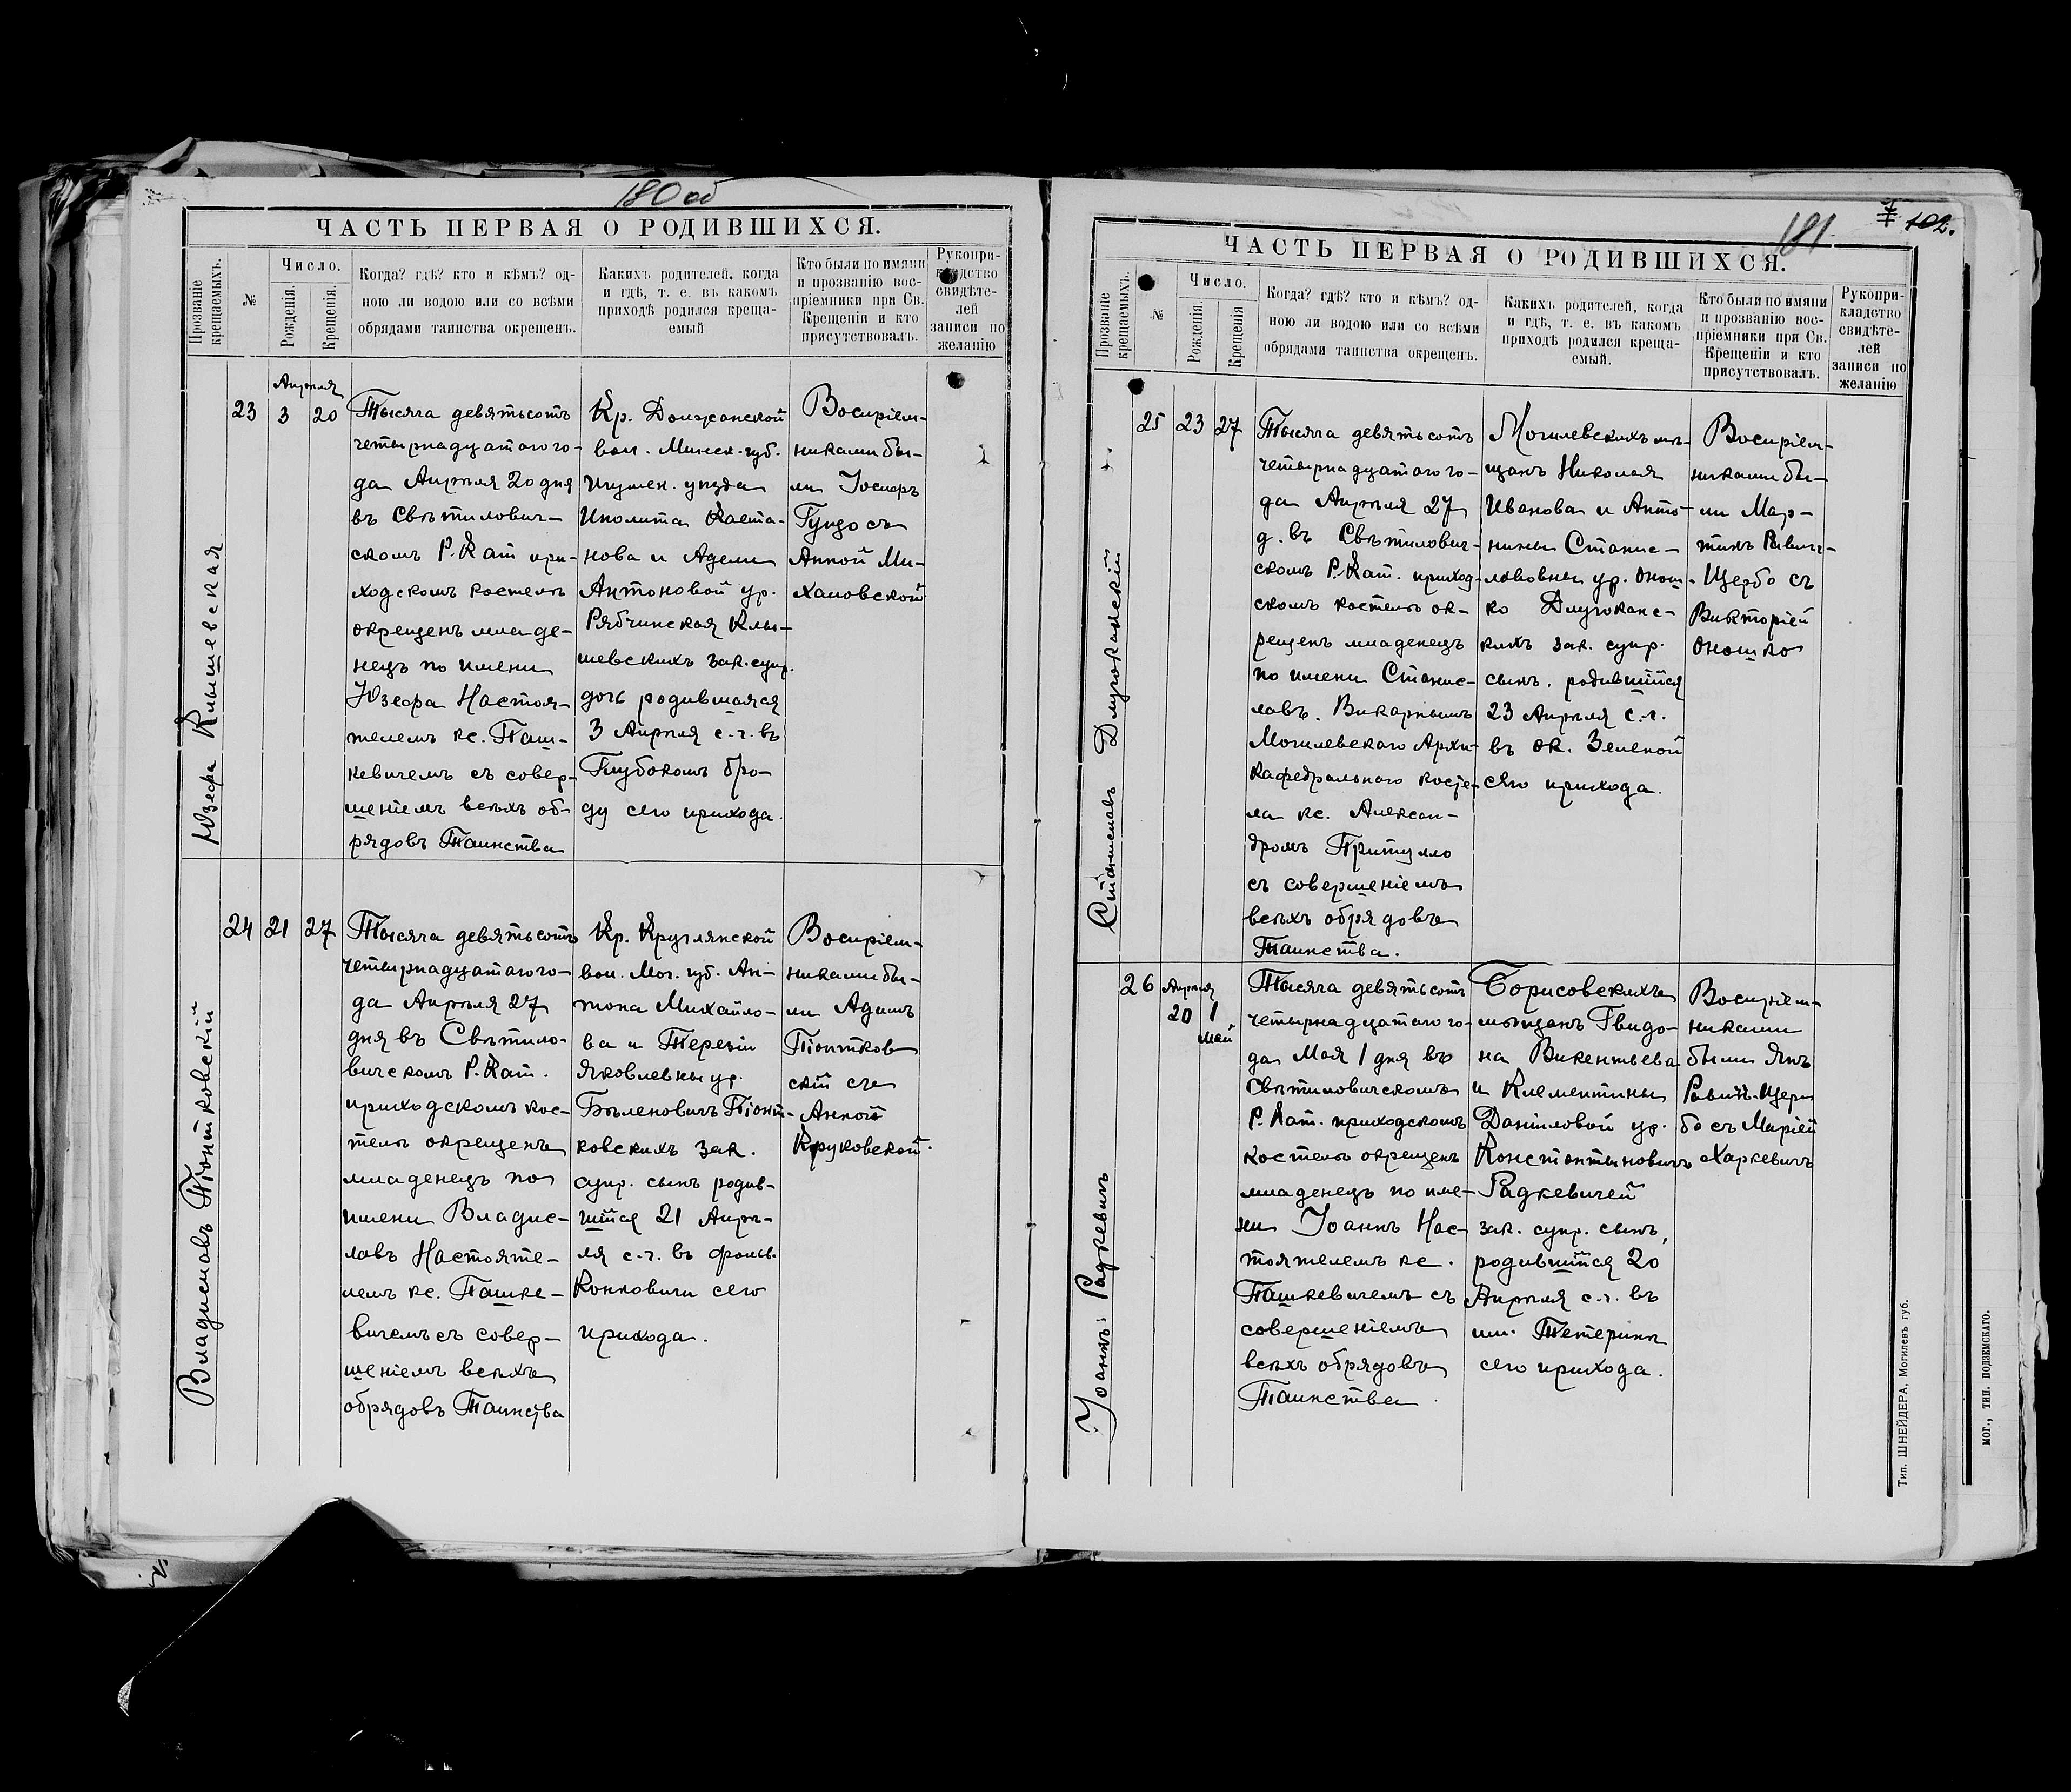 180 об
ЧАСТЬ ПЕРВАЯ О РОДИВШИХСЯ.
Прозваніе крещаемыхъ.
№
Число.
Рожденія.
Крещенія.
Когда? гдѣ? кто и кѣмъ? од-
ною ли водою или со всѣми
обрядами таинства окрещенъ.
Какихъ родителей, когда
и гдѣ, т. е. въ какомъ
приходѣ родился креща-
емый
Кто были по имяни
и прозванію вос-
пріемники при Св.
Крещеніи и кто
присутствовалъ.
Рукопри-
кладство
свидѣте-
лей
записи по
желанію
Юзефа Клышевская
23
Апрѣля
3
20
Тысяча девятьсотъ
четырнадцатаго го-
да Апрѣля 20 дня
въ Свѣтилович-
скомъ Р. Кат при-
ходскомъ костелѣ
окрещенъ младе-
нецъ по имени
Юзефа Настоя-
телемъ кс. Паш-
кевичемъ съ совер-
шеніемъ всѣхъ об-
рядовъ Таинства
Кр. Должанской
вол. Минск. губ.
Игумен. уѣзда
Иполита Каета-
нова и Адели
Антоновой ур.
Рябчинская Клы-
шевскихъ зак. супр.
дочь родившаяся
3 Апрѣля с. г. въ
Глубокомъ бро-
ду сего прихода.
Воспріем-
никами бы-
ли Іосифъ
Гундо съ
Анной Ми-
халовской
Владиславъ Піонтковскій
24
21
27
Тысяча девятьсотъ
четырнадцатаго го-
да Апрѣля 27
дня въ Свѣтило-
вичскомъ Р. Кат.
приходскомъ кос-
телѣ окрещенъ
младенецъ по
имени Владис-
лавъ Настояте-
лемъ кс. Пашке-
вичемъ съ совер-
шеніемъ всѣхъ
обрядовъ Таинства
Кр. Круглянской
вол. Мог. губ. Ан-
тона Михайло-
ва и Терезіи
Яковлевны ур.
Бѣленовичъ Піонт-
ковскихъ зак.
супр. сынъ родив-
шійся 21 Апрѣ-
ля с. г. въ фольв.
Конковичи сего
прихода.
Воспріем-
никами бы-
ли Адамъ
Піонтков
скій съ
Анной
Круковской.
181
102.
ЧАСТЬ ПЕРВАЯ О РОДИВШИХСЯ.
Прозваніе крещаемыхъ.
№
Число.
Рожденія.
Крещенія
Когда? гдѣ? кто и кѣмъ? од-
ною ли водою или со всѣми
обрядами таинства окрещенъ.
Какихъ родителей, когда
и гдѣ, т. е. въ какомъ
приходѣ родился креща-
емый.
Кто были по имяни
и прозванію вос-
пріемники при Св.
Крещеніи и кто
присутствовалъ.
Рукопри-
кладство
свидѣте-
лей
записи по
желанію
Станиславъ Длугоканскій
25
23
27
Тысяча девятьсотъ
четырнадцатаго го-
да Апрѣля 27
д. въ Свѣтилович-
скомъ Р. Кат. приход-
скомъ костелѣ ок-
рещенъ младенецъ
по имени Станис-
лавъ. Викарнымъ
Могилевскаго Архи-
кафедральнаго косте-
ла кс. Алексан-
дромъ Притулло
съ совершеніемъ
всѣхъ обрядовъ
Таинства.
Могилевскихъ мѣ-
щанъ Николая
Иванова и Анто-
нины Станис-
лавовны ур. Онош-
ко Длугоканс-
кихъ зак. супр.
сынъ. родившійся
23 Апрѣля с. г.
въ ок. Зеленой
сего прихода.
Воспріем-
никами бы-
ли Мар-
тинъ Равичъ-
Щербо съ
Викторіей
Оношко
Іоаннъ Радкевичъ
26
Апрѣля
20
1
Май
Тысяча девятьсотъ
четырнадцатаго го-
да Мая 1 дня въ
Свѣтиловичскомъ
Р. Кат. приходскомъ
костелѣ окрещенъ
младенецъ по име-
ни Іоаннъ Нас-
тоятелемъ кс.
Пашкевичемъ съ
совершеніемъ
всѣхъ обрядовъ
Таинства.
Борисовскихъ
мѣщанъ Гвидо-
на Викентьева
и Клементины
Даніиловой ур.
Константыновичъ
Радкевичей
зак. супр. сынъ,
родившійся 20
Апрѣля с. г. въ
им. Тетеринъ
сего прихода.
Воспріем-
никами
были Янъ
Равичъ-Щер
бо съ Маріей
Харкевичъ
Тип. ШНЕЙДЕРА, Могилевъ губ.
МОГ., ТИП. ПОДЗЕМСКАГО.